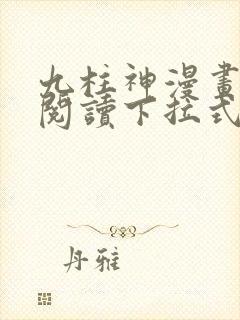 九柱神漫畫
閱讀下拉式
丹雅